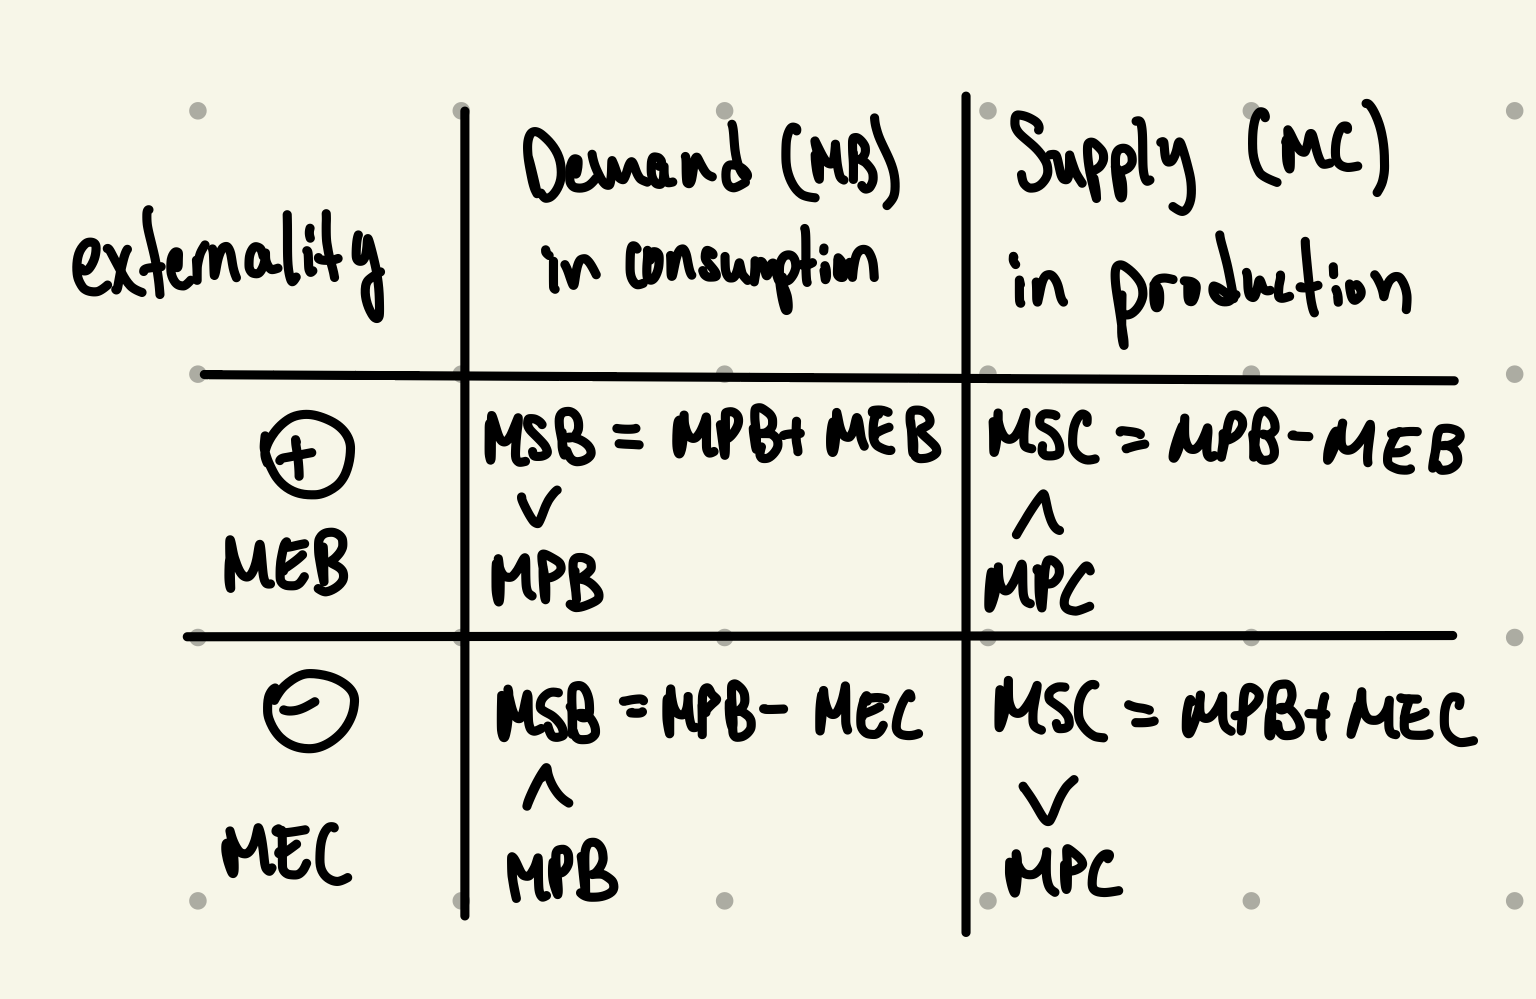 externality
Demand (MB)
in consumption
Supply (MC)
in production
+
MEB
MSB = MPB+ MEB
∨
MPB
MSC = MPB-MEB
∧
MPC
-
MEC
MSB = MPB- MEC
∧
MPB
MSC = MPB+ MEC
∨
MPC